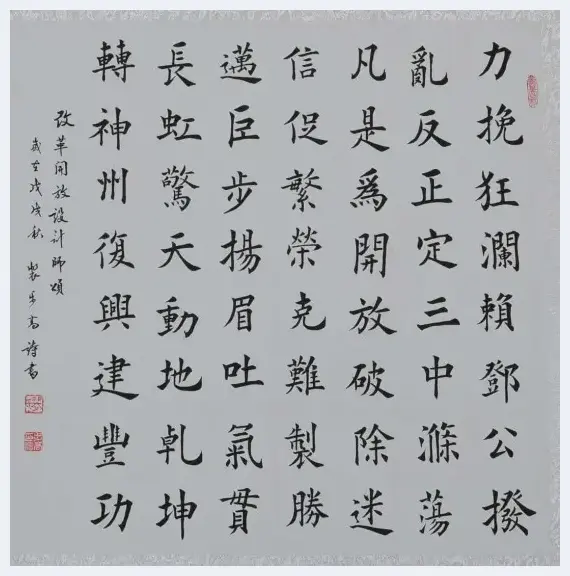 力挽狂瀾賴鄧公撥
亂反正定三中滌蕩
凡是爲開放破除迷
信促繁榮克難製勝
邁巨步揚眉吐氣貫
長虹驚天動地乹坤
轉神州復興建豐功
改革開放設計師頌
歲在戊戌秋 裴步高詩書